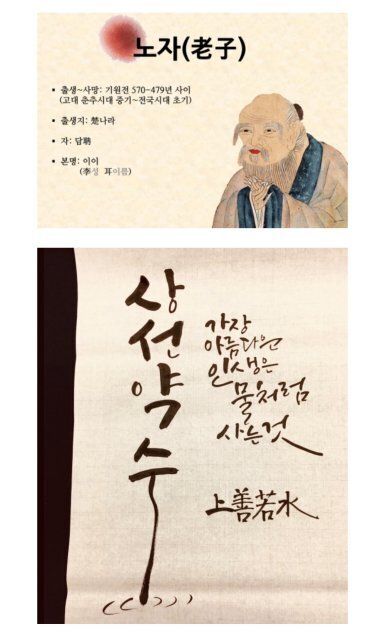 노자(老子)
▪ 출생~사망: 기원전 570~479년 사이
(고대 춘추시대 중기~전국시대 초기)
▪ 출생지: 楚나라
▪ 자: 담聃
▪ 본명: 이이
(李성 耳이름)
상선약수
가장
아름다운
인생은
물처럼
사는것
上善若水